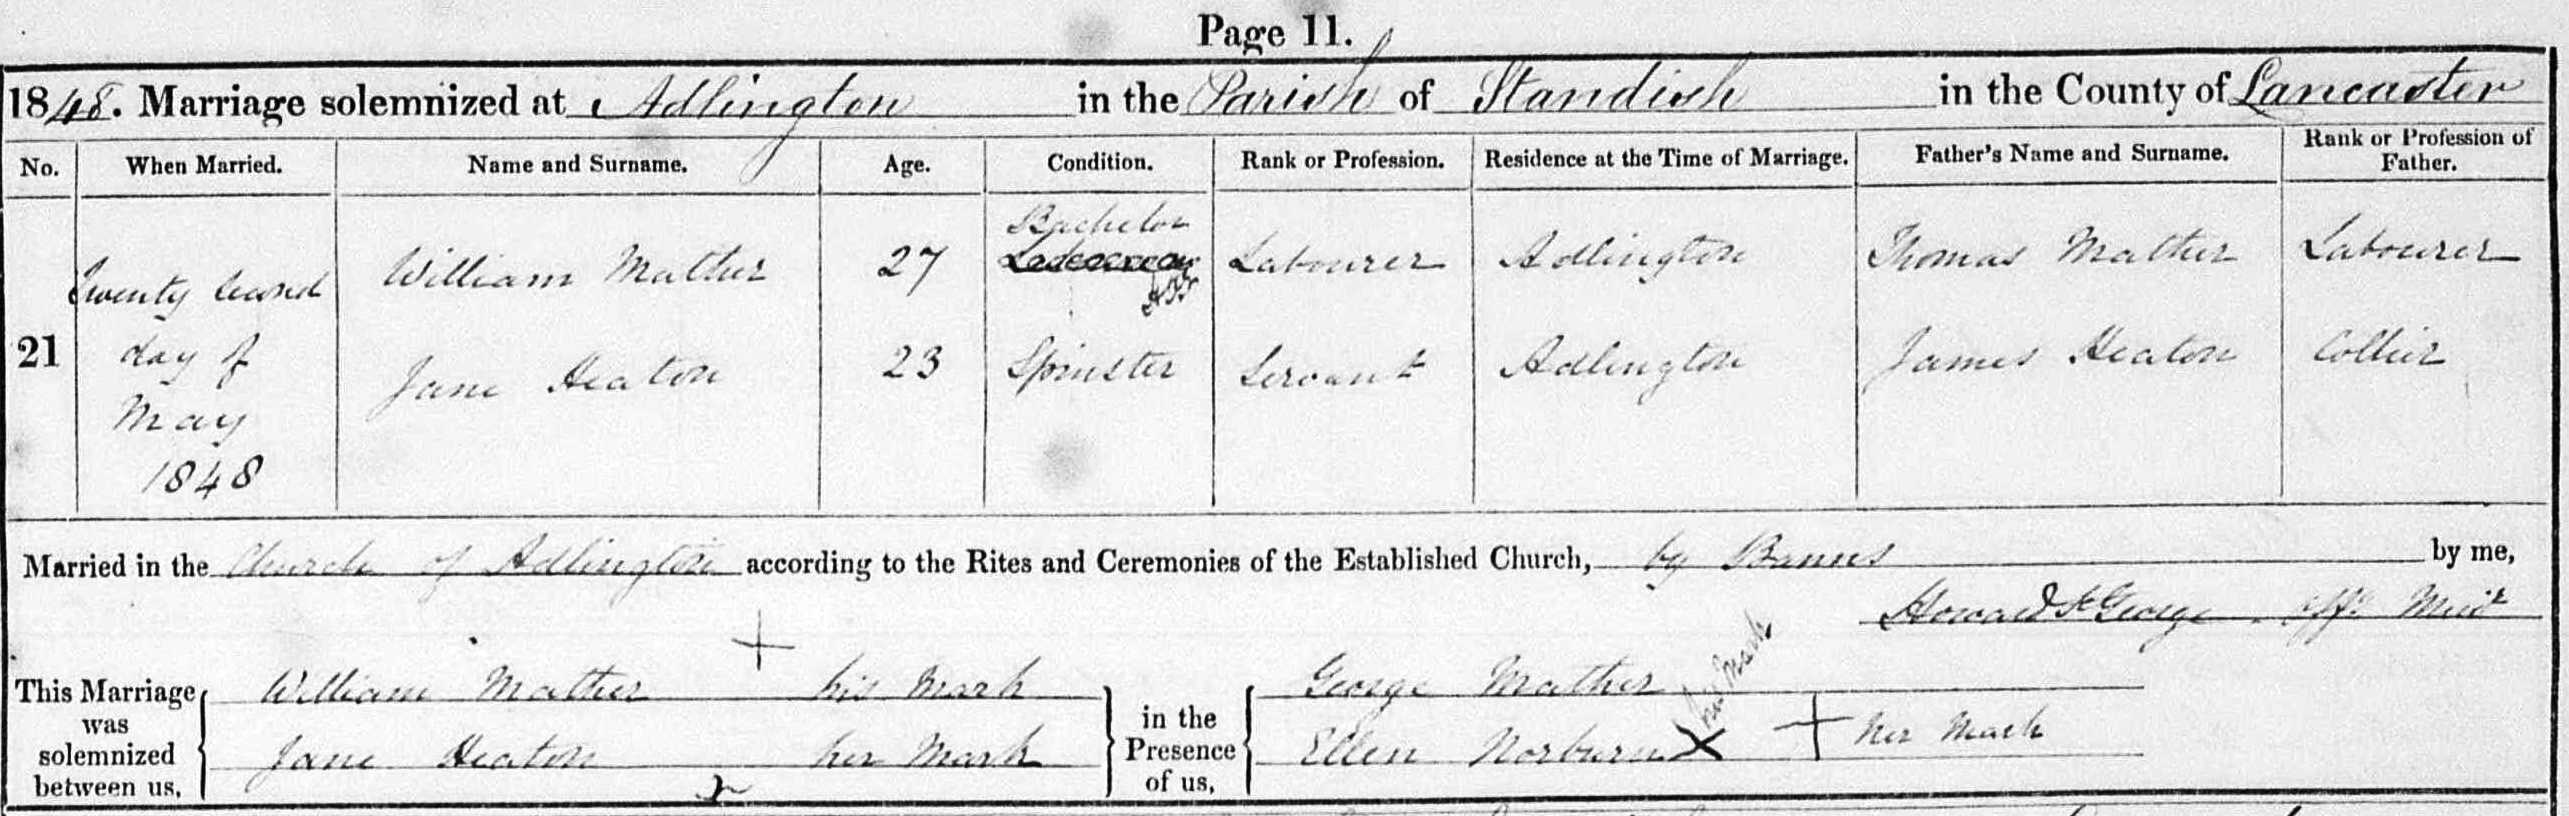 Page 11.
1848. Marriage solemnized at Adlington in the Parish of Standish in the County of Lancaster
No. When Married. Name and Surname. Age. Condition. Rank or Profession. Residence at the Time of Marriage. Father's Name and Surname. Rank or Profession of Father.
Bachelor
William Mather 27 Labourer Adlington Thomas Mather Labourer
Twenty second
21 day of Jane Heaton 23 Spinster Servant Adlington James Heaton Collier
May
1848
Married in the Church of Adlington according to the Rites and Ceremonies of the Established Church, by Banns by me,
Howard St George. Offg Minr
This Marriage was solemnized between us, William Mather + his Mark in the Presence of us, George Mather X his Mark
Jane Heaton her Mark Ellen Norburn + her Mark